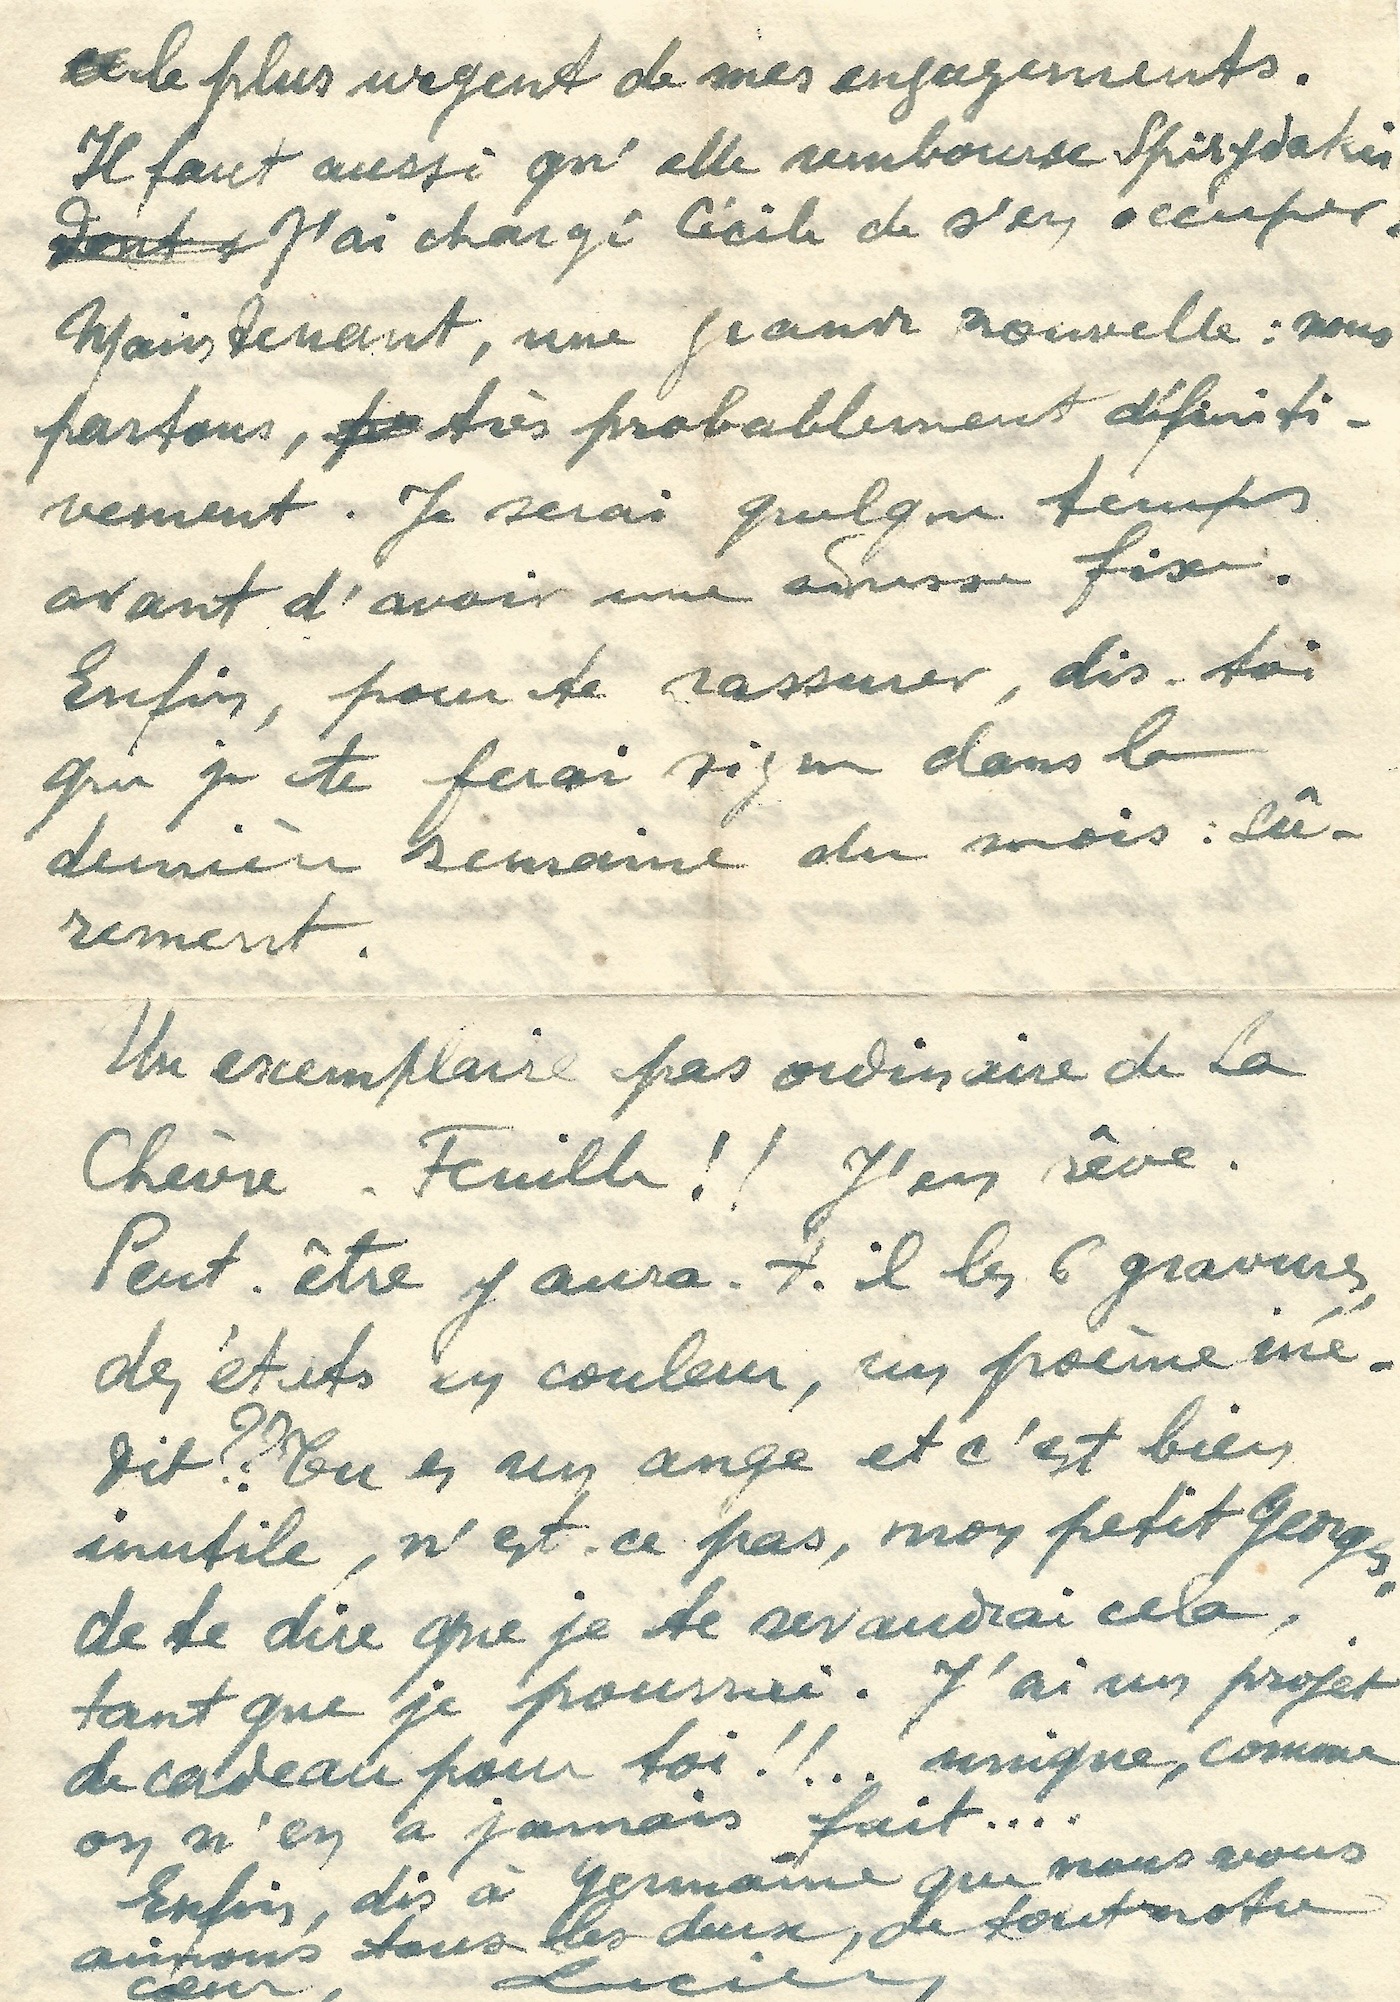 le plus urgent de mes engagements.
Il faut aussi qu'elle rembourse Spirydakis
Dont J'ai chargé Cécile de s'en occuper.
Maintenant, une grande nouvelle : nous
partons, très probablement définiti-
vement. Je serai quelque temps
avant d'avoir une adresse fixe.
Enfin, pour te rassurer, dis-toi
que je te ferai signe dans la
dernière semaine du mois : sû-
rement.
Un exemplaire pas ordinaire de La
Chèvre-Feuille !! J'en rêve.
Peut-être y aura-t-il les 6 gravures,
des états en couleur, un poème iné-
dit ?? Tu es un ange et c'est bien
inutile, n'est-ce pas, mon petit Georges,
de te dire que je te revaudrai cela,
tant que je pourrai. J'ai un projet
de cadeau pour toi !!... unique, comme
on n'en a jamais fait....
Enfin, dis à Germaine que nous vous
aimons tous les deux, de tout notre
cœur, Lucien